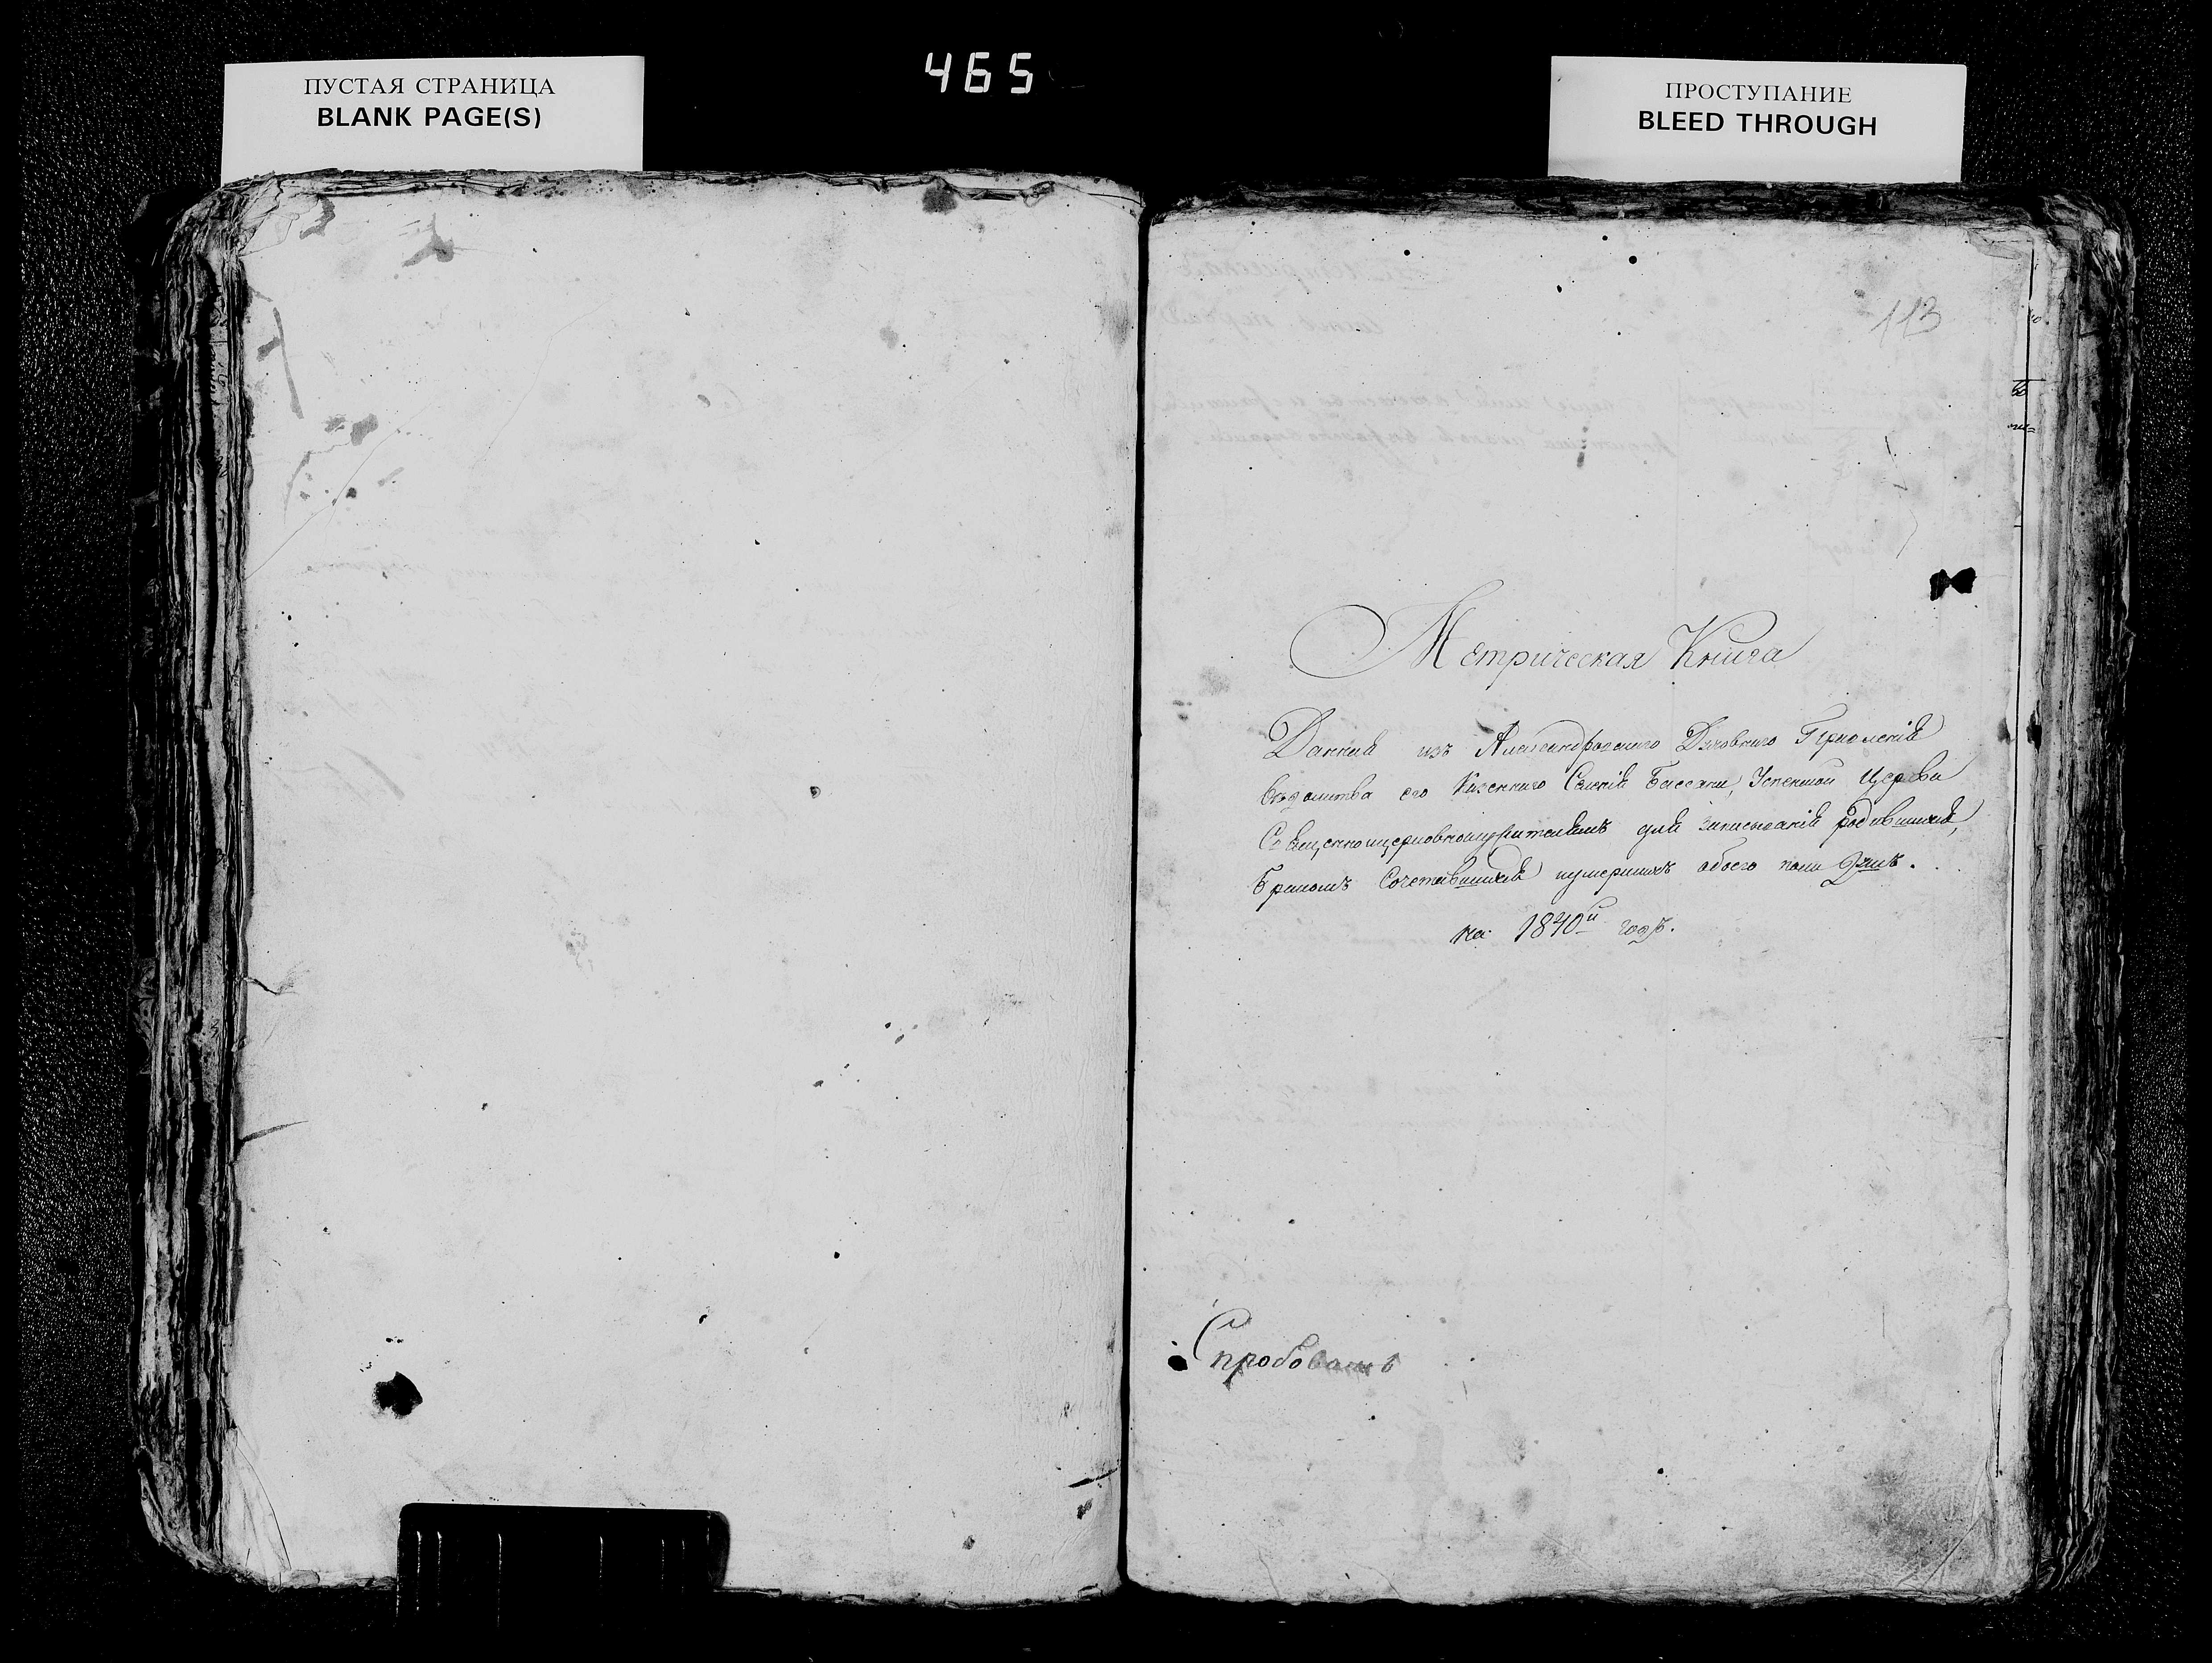 ПУСТАЯ СТРАНИЦА
BLANK PAGE(S)
465
ПРОСТУПАНИЕ
BLEED THROUGH
113
Метрическая Книга
Данная изъ Александровскаго Духовнаго Правленія
вѣдомства его Казеннаго Селенія Бассани, Успенской Церкви
Священноцерковнослужителямъ для записыванія родившихся,
бракомъ Сочетавшихся иумершихъ обоего пола
на 1840й годъ.